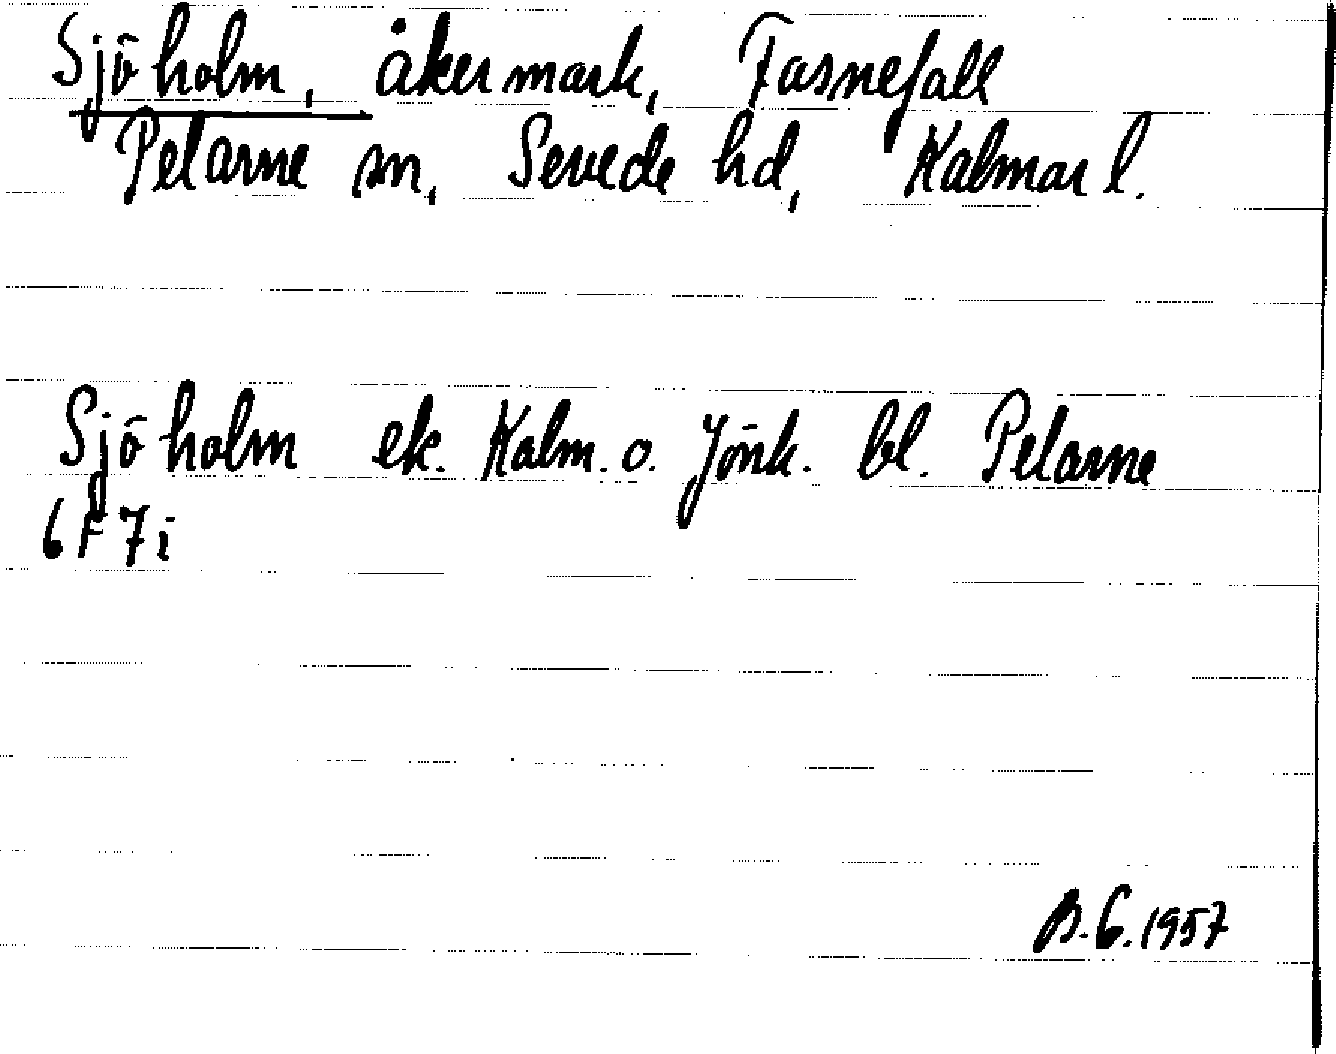 Sjöholm, åkermark, Fasnefall
Pelarne sn, Sevede hd, Kalmar l.
Sjöholm ek. Kalm. o. Jönk. bl. Pelarne
6F7i
B.G.1957